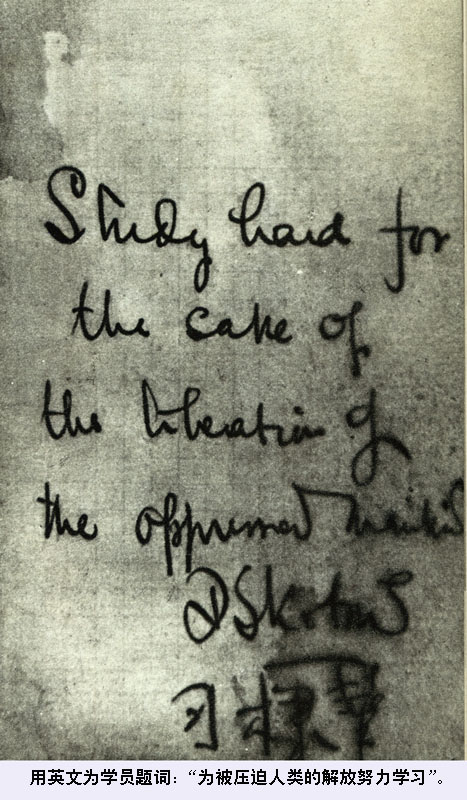 Study hard for
the sake of
the liberation of
the oppressed mankind
DSKotnis
柯棣華
用英文为学员题词：“为被压迫人类的解放努力学习”。